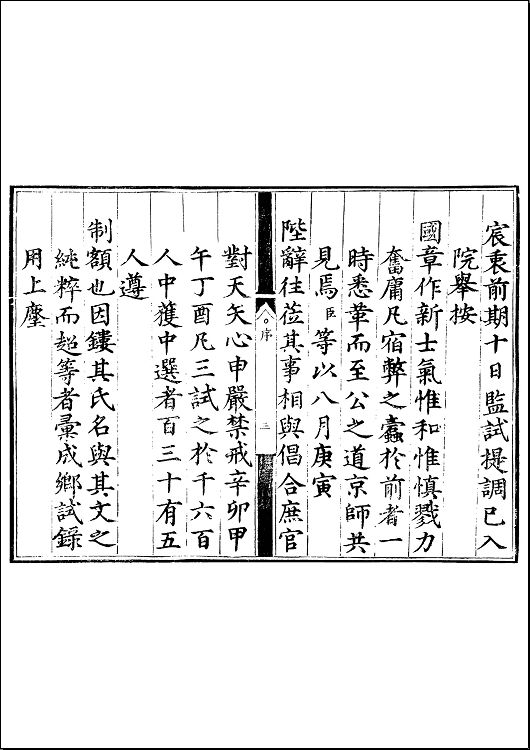 宸衷前期十日監試提調已入
院舉按
國章作新士氣惟和惟慎戮力
奮庸凡宿弊之蠹於前者一
時悉革而至公之道京師共
見焉臣等以八月庚寅
陛辭往莅其事相與倡合庶官
序
三
對天矢心申嚴禁戒辛卯甲
午丁酉凡三試之於千六百
人中獲中選者百三十有五
人遵
制額也因鏤其氏名與其文之
純粹而超等者彙成鄉試錄
用上塵